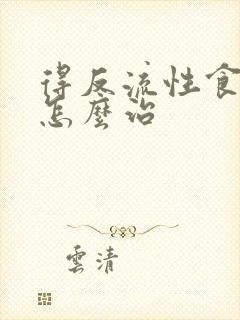 得反流性食
怎麼治
雲清